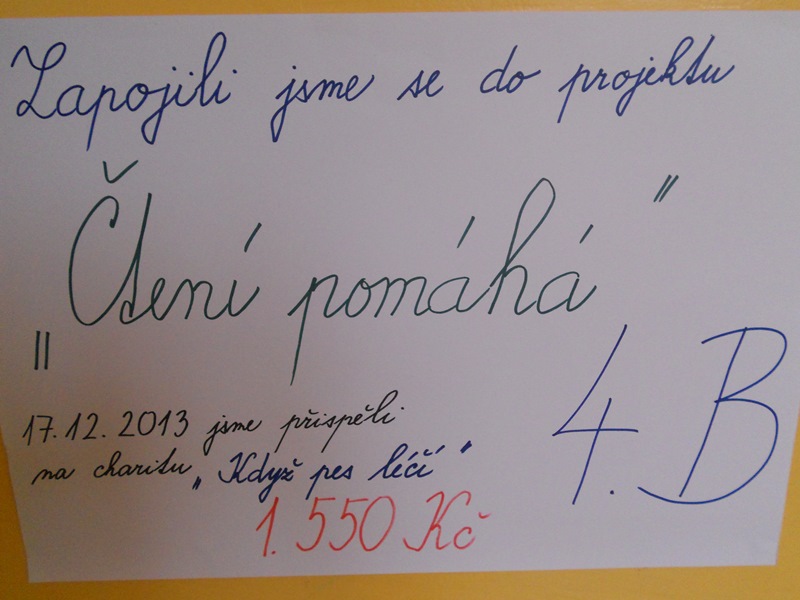 Zapojili jsme se do projektu
„Čtení pomáhá"
4. B
17.12.2013 jsme přispěli
na charitu „Když pes léčí"
1.550 Kč